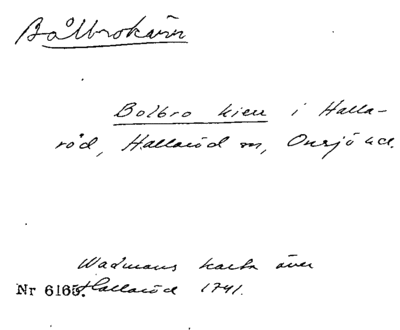 Bålbrokärr
Bolbro kier i Halla-
röd, Hallaröd sn, Onsjö hd.
Wadmans karta över
Hallaröd 1741.
Nr 6165.